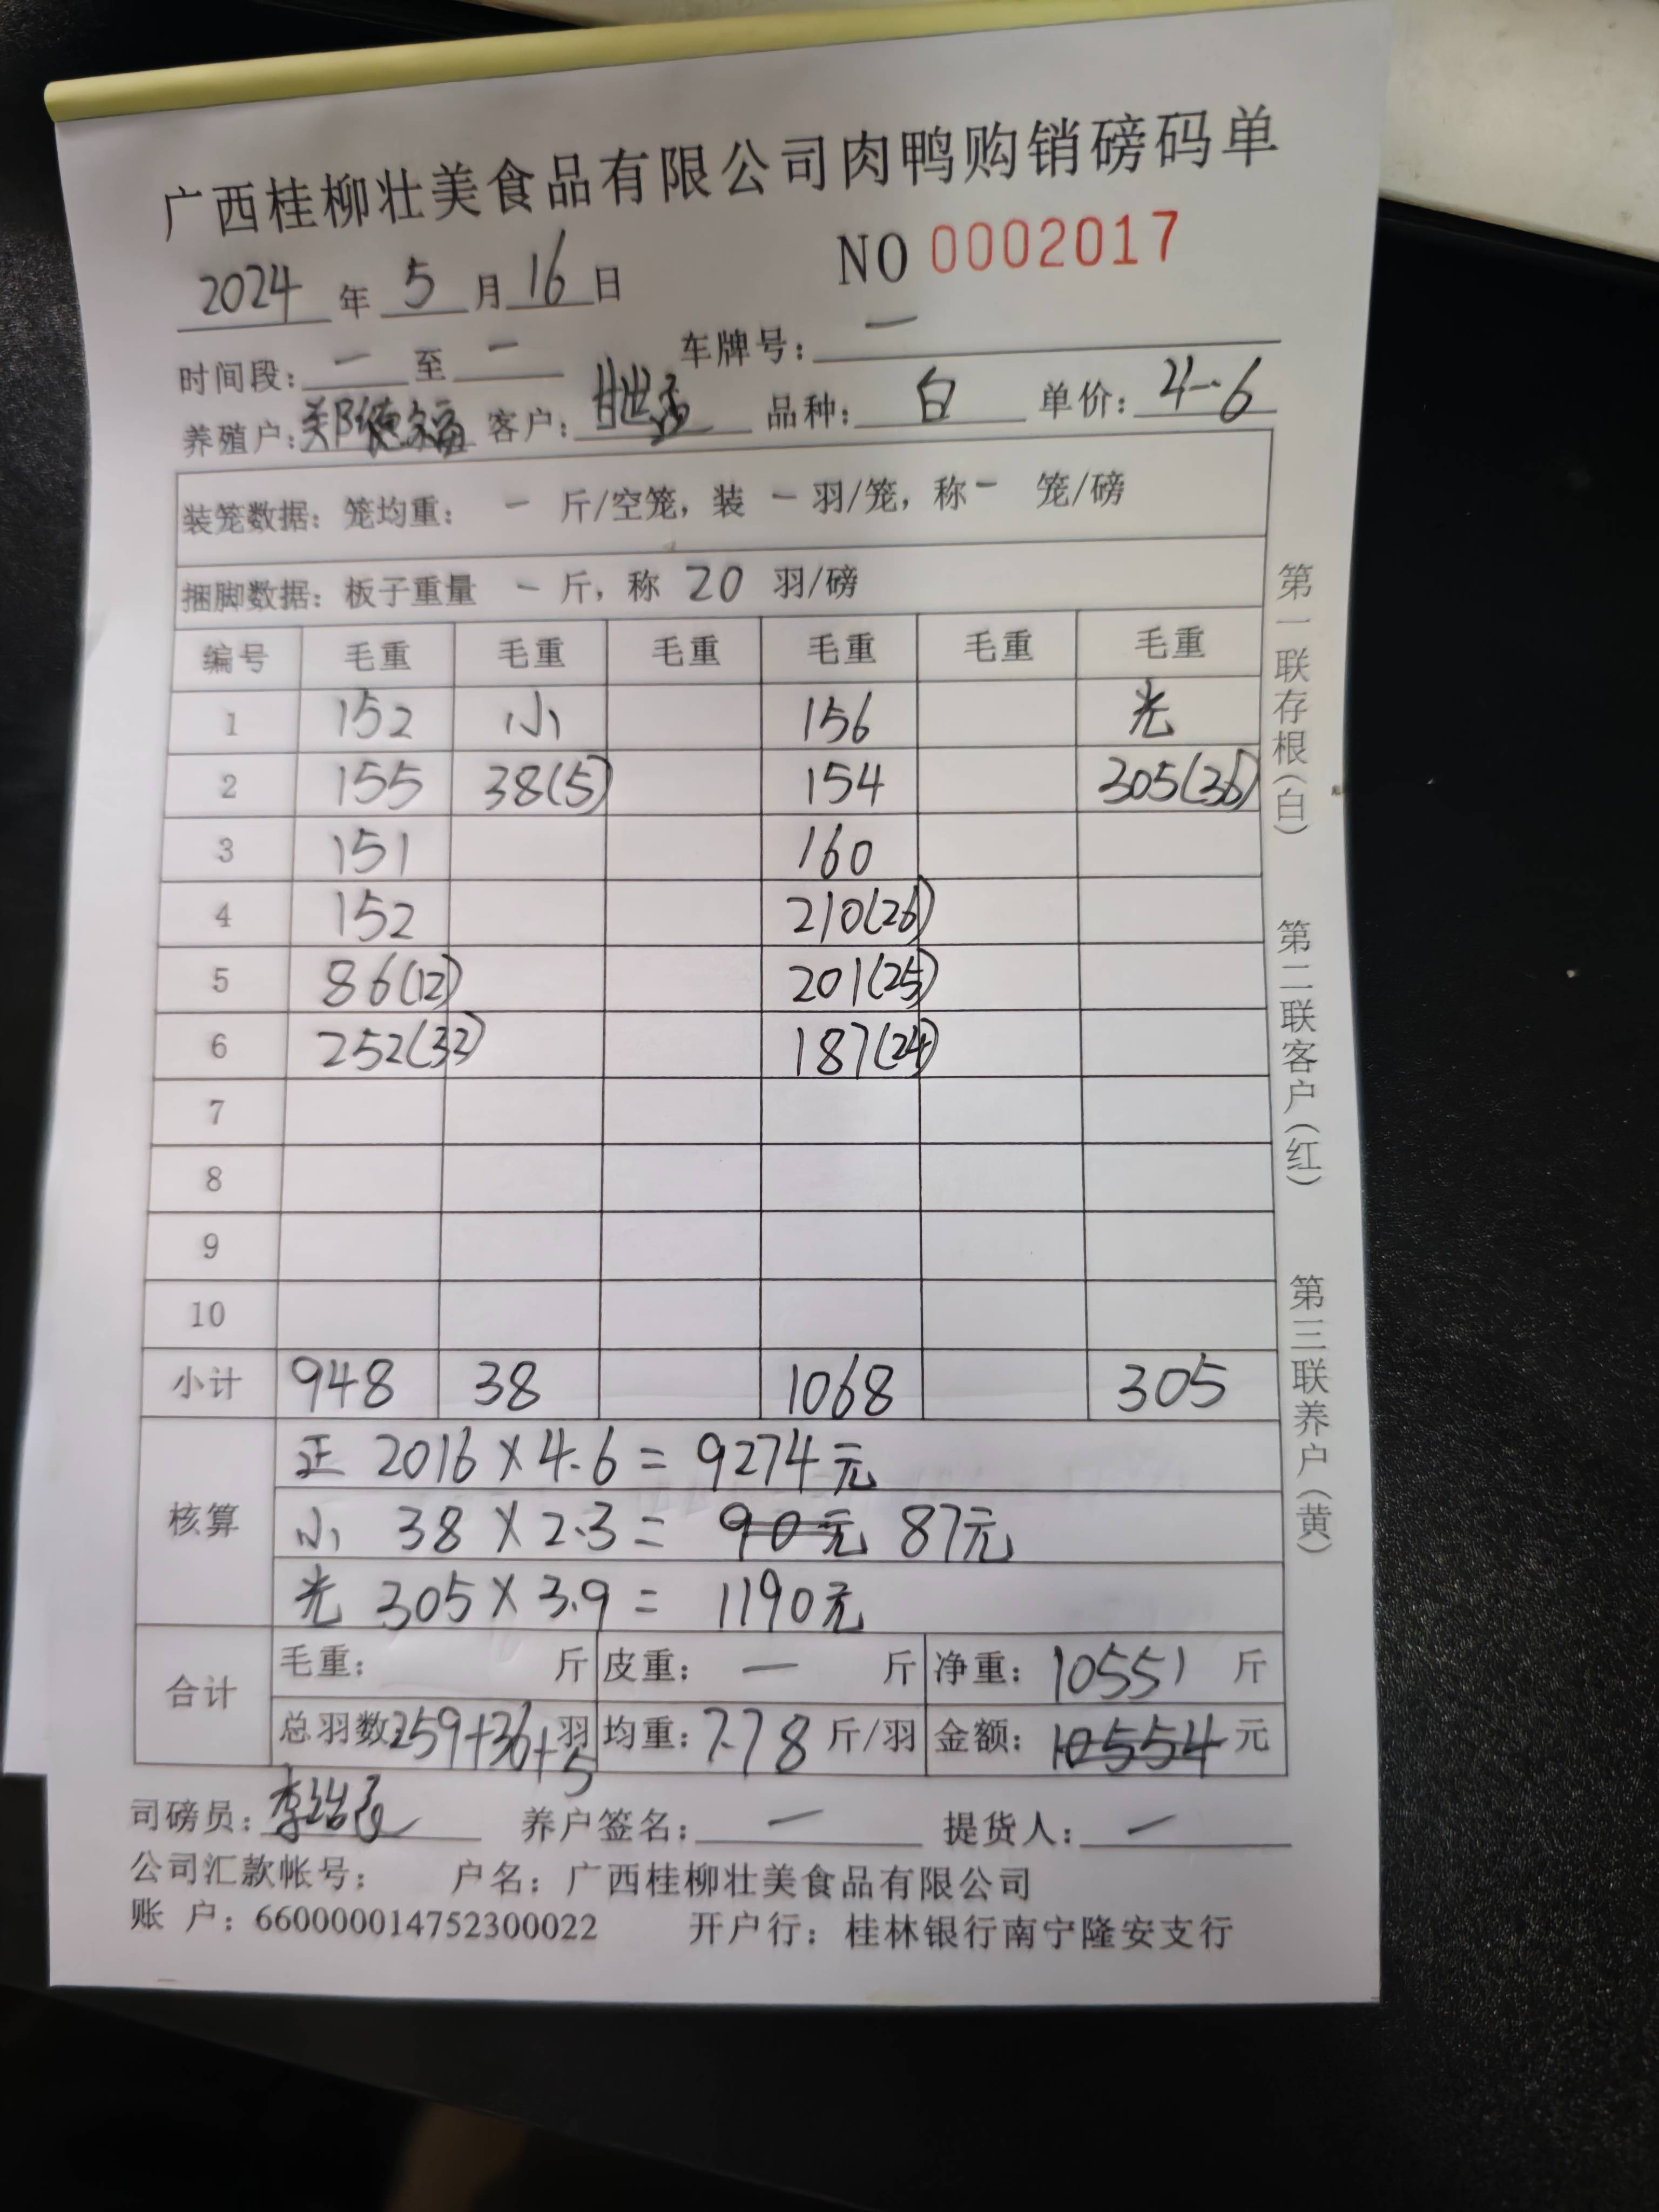 广西桂柳壮美食品有限公司肉鸭购销磅码单
2024 年 5 月 16 日 NO 0002017
时间段: 一 至 一 车牌号: 一
养殖户: 郑德福 客户: 品种: 白 单价: 4.6
装笼数据: 笼均重: 一 斤/空笼, 装 一 羽/笼, 称 一 笼/磅
捆脚数据: 板子重量 一 斤, 称 20 羽/磅
编号 毛重 毛重 毛重 毛重 毛重 毛重
1 152 小 156 光
2 155 38(5) 154 305(36)
3 151 160
4 152 210(26)
5 86(12) 201(25)
6 252(32) 187(24)
7
8
9
10
小计 948 38 1068 305
核算
正 2016 X 4.6 = 9274元
小 38 X 2.3 = 90元 87元
光 305 X 3.9 = 1190元
合计
毛重: 斤 皮重: 一 斤 净重: 10551 斤
总羽数: 259+36+5 羽 均重: 7.78 斤/羽 金额: 10554 元
司磅员: 养户签名: 一 提货人: 一
公司汇款帐号: 户名: 广西桂柳壮美食品有限公司
账 户: 660000014752300022 开户行: 桂林银行南宁隆安支行
第一联存根(白) 第二联客户(红) 第三联养户(黄)